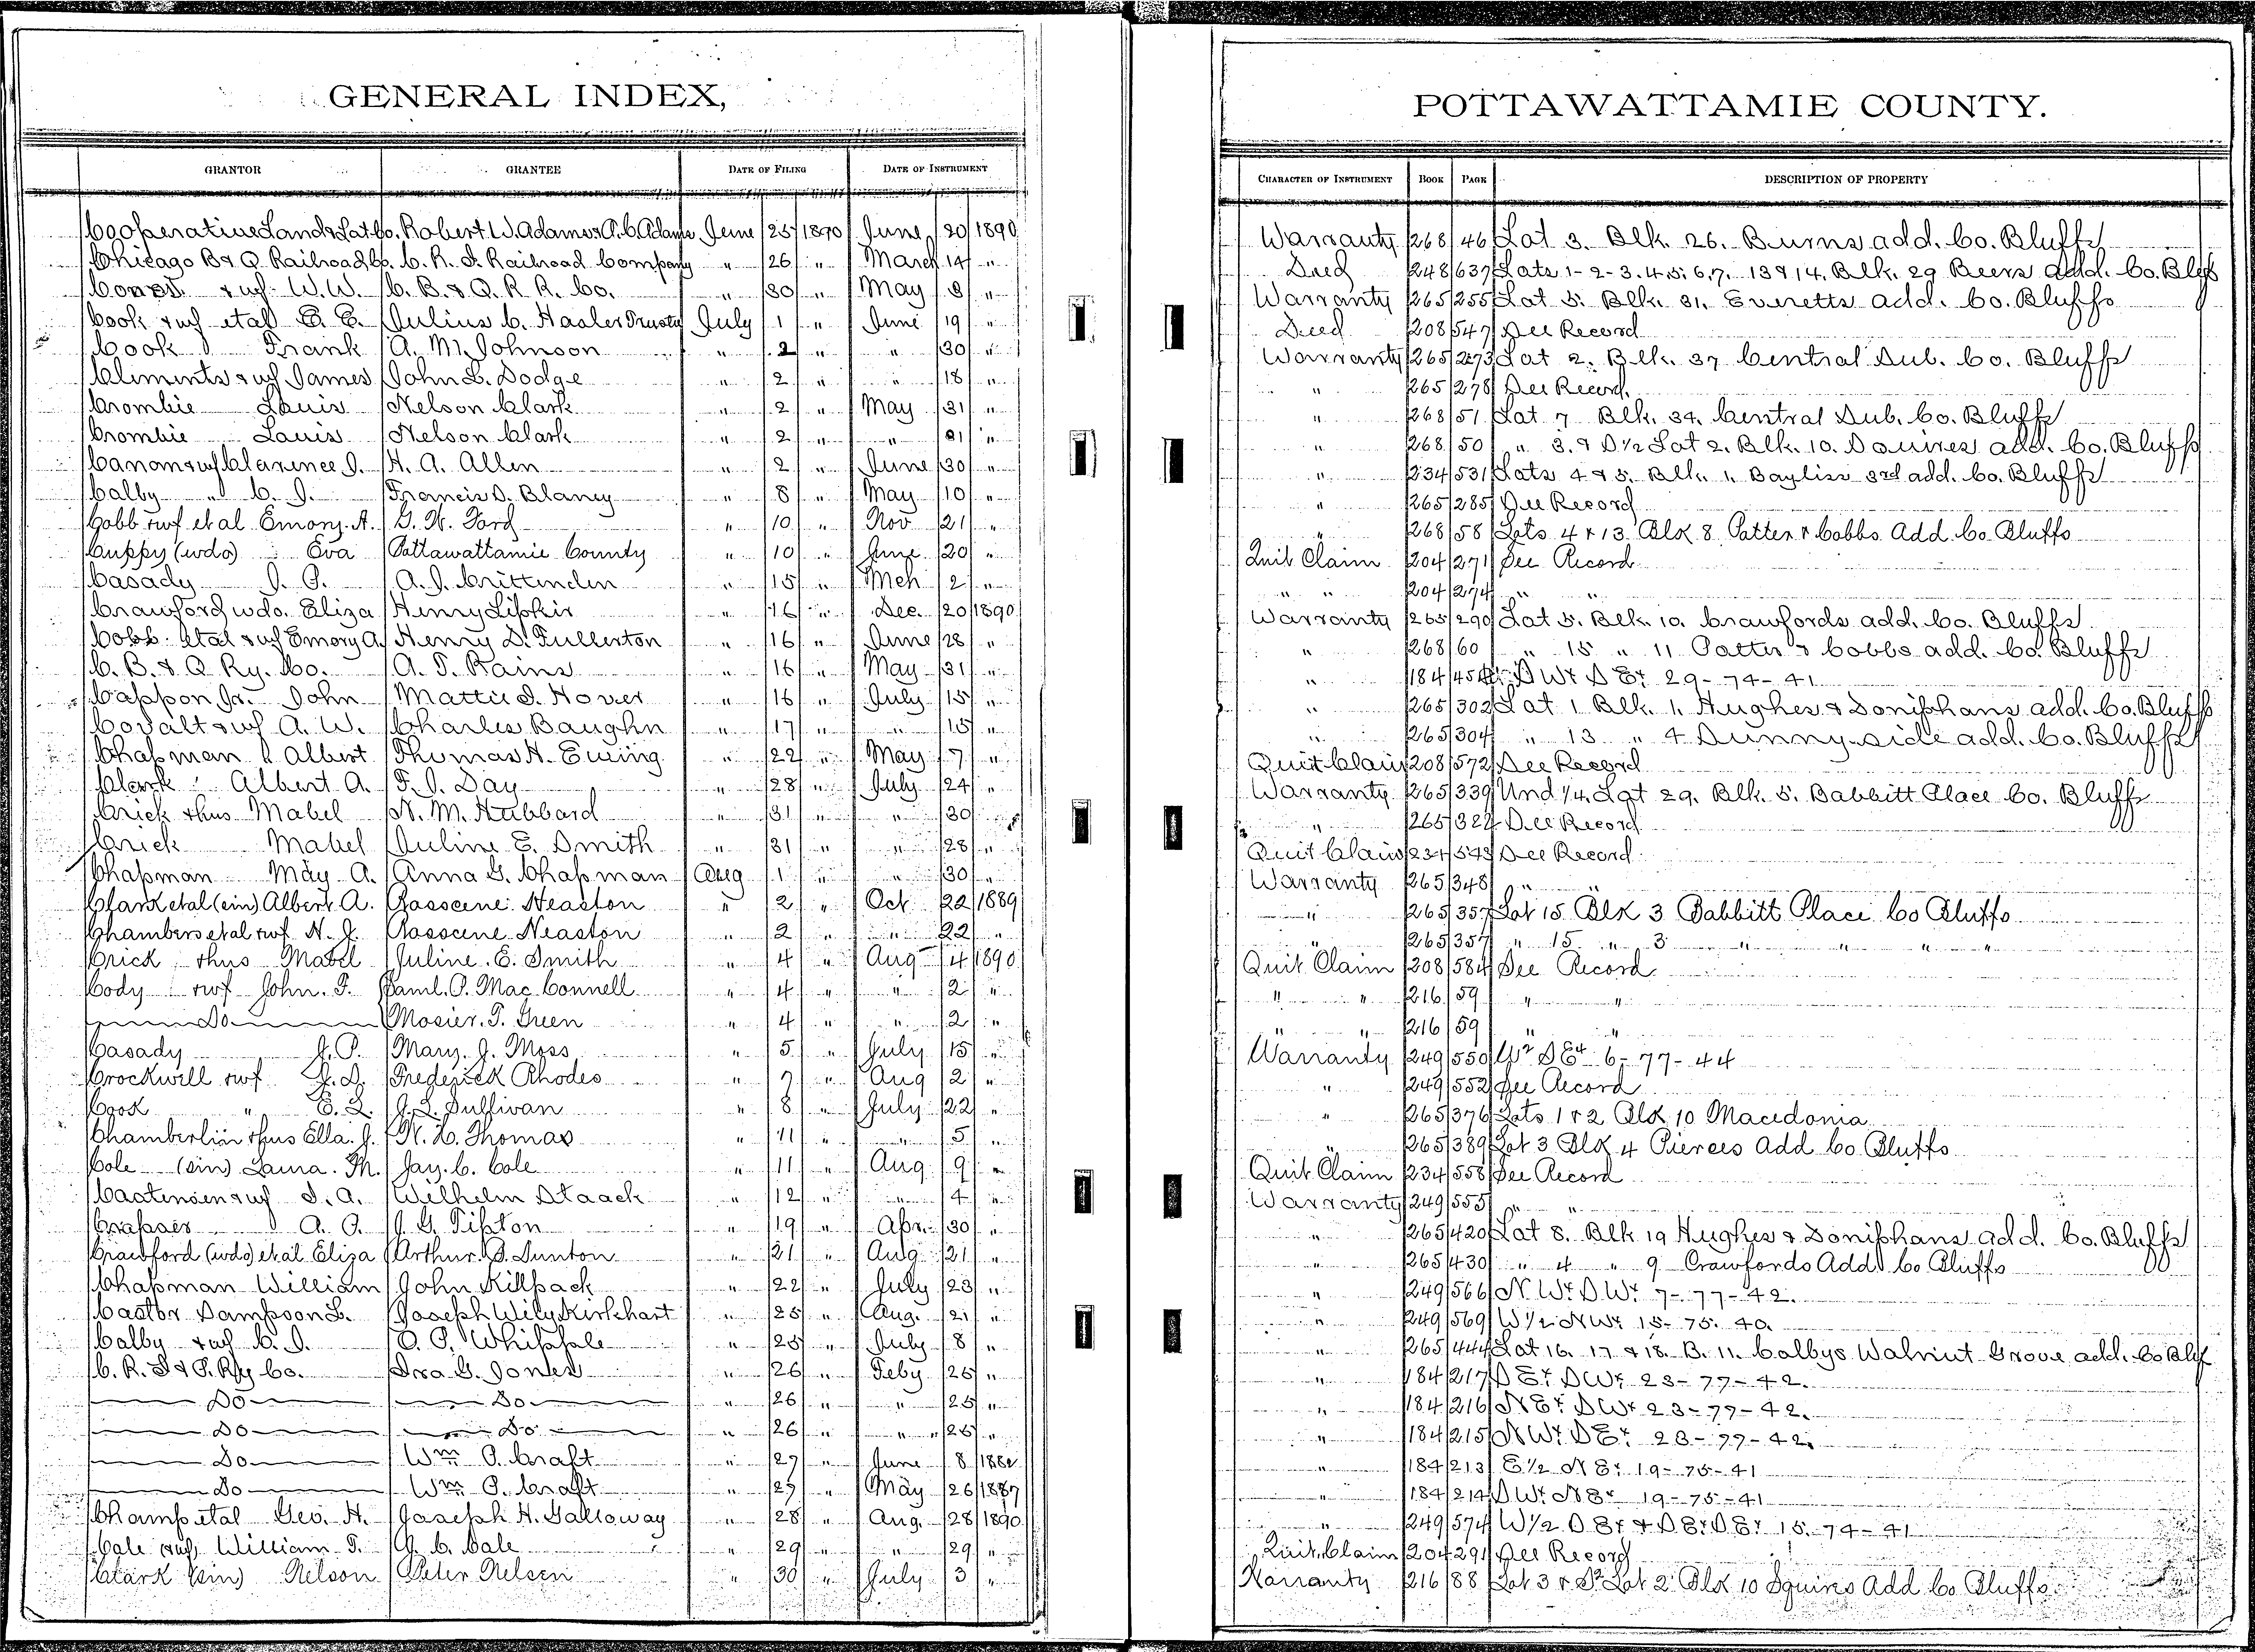 GENERAL INDEX,
GRANTOR GRANTEE DATE OF FILING DATE OF INSTRUMENT
Cooperative Land & Lot Co. Robert W. Adams & A. C. Adams June 25 1890 June 20 1890
Chicago B & Q Railroad Co. C. R. I. Railroad Company " 26 " March 14 "
& wf W. W. C. B. & Q. R. R. Co. " 30 " May 8 "
Cook & wf et al E. E. Julius C. Hasler Trustee July 1 " June 19 "
Cook Frank A. M. Johnson " 2 " " 30 "
Clements & wf James John L. Dodge " 2 " " 18 "
Crombie Louis Nelson Clark " 2 " May 31 "
Crombie Louis Nelson Clark " 2 " " 31 "
Canon & wf Clarence J. H. A. Allen " 2 " June 30 "
Calby " C. J. Francis S. Blaney " 8 " May 10 "
Cobb & wf et al Emory. A. G. H. Ford " 10 " Nov 21 "
Cuppy (wdo) Eva Pottawattamie County " 10 " June 20 "
Casady J. P. A. J. Crittenden " 15 " Mch 2 "
Crawford wdo. Eliza Henry Lipkir " 16 " Dec. 20 1890
Cobb et al & wf Emory A. Henry D. Fullerton " 16 " June 28 "
C. B. & Q Ry. Co. A. T. Rains " 16 " May 31 "
Cappon Jr. John Mattie S. Hover " 16 " July 15 "
Covalt & wf A. W. Charles Baughn " 17 " " 15 "
Chapman Albert Thomas H. Ewing " 22 " May 7 "
Clark Albert A. F. J. Day " 28 " July 24 "
Crick & hus Mabel N. M. Hubbard " 31 " " 30 "
Crick Mabel Juline E. Smith " 31 " " 28 "
Chapman May A. Anna G. Chapman Aug 1 " " 30 "
Clark et al (sin) Albert A. Rasscene Heaston " 2 " Oct 22 1889
Chambers et al & wf H. J. Rasscene Heaston " 2 " " 22 "
Crick & hus Mabel Juline. E. Smith " 4 " Aug 4 1890
Cody & wf John. F. Saml. P. Mac Connell " 4 " " 2 "
Do Mosier. T. Green " 4 " " 2 "
Casady J. P. Mary. J. Moss " 5 " July 15 "
Crockwell & wf J. D. Frederick Rhodes " 7 " Aug 2 "
Cook " E. L. J. L. Sullivan " 8 " July 22 "
Chamberlin & hus Ella. J. H. L. Thomas " 11 " " 5 "
Cole (sin) Laura. M. Jay. C. Cole " 11 " Aug 9 "
Castensen & wf S. A. Wilhelm Staack " 12 " " 4 "
A. P. J. G. Tipton " 19 " Apr. 30 "
Crawford (wdo) et al Eliza Arthur. S. Dunton " 21 " Aug 21 "
Chapman William John Killpack " 22 " July 23 "
Castor Sampson L. Joseph Wily Kirkhart " 25 " Aug. 21 "
Calby & wf C. J. O. P. Whipple " 25 " July 8 "
C. R. I & P. Ry Co. Ira G. Jones " 26 " Feby 25 "
Do Do " 26 " " 25 "
Do Do " 26 " " 25 "
Do Wm P. Craft " 27 " June 8
Do Wm P. Craft " 27 " May 26 1887
Champ et al Geo. H. Joseph H. Galloway " 28 " Aug. 28 1890
Cale & wf William T. C. Dale " 29 " " 29 "
Clark (sin) Nelson Peter Nelsen " 30 " July 3 "
POTTAWATTAMIE COUNTY.
CHARACTER OF INSTRUMENT BOOK PAGE DESCRIPTION OF PROPERTY
Warranty 268 46 Lot 3. Blk. 26. Burns add. Co. Bluffs
Deed 248 637 Lots 1-2-3. 4. 5. 6. 7. 13 & 14. Blk. 29 Beers add. Co. Blfs
Warranty 265 255 Lot 5. Blk. 31. Everetts add. Co. Bluffs
Deed 208 547 See Record
Warranty 265 273 Lot 2. Blk. 37 Central Sub. Co. Bluffs
" 265 278 See Record.
" 268 51 Lot 7 Blk. 34. Central Sub. Co. Bluffs
" 268 50 " 3. & S 1/2 Lot 2. Blk. 10. Squires add. Co. Bluffs
" 234 531 Lots 4 & 5. Blk. 1. Bayliss 3rd add. Co. Bluffs
" 265 285 See Record
" 268 58 Lots 4 & 13 Blk 8 Potter & Cobbs Add Co Bluffs
Quit Claim 204 271 See Record
" " 204 274 " "
Warranty 265 290 Lot 5. Blk. 10. Crawfords add. Co. Bluffs
" 268 60 " 15 " 11 Potter & Cobbs add. Co. Bluffs
" 184 454 S W4 S E4 29-74-41
" 265 302 Lot 1 Blk. 1, Hughes & Doniphans add. Co. Bluffs
" 265 304 " 13 " 4 Sunny-side add. Co. Bluffs
Quit Claim 208 572 See Record
Warranty 265 339 Und 1/4 Lot 29. Blk. 5. Babbitt Place Co. Bluffs
" 265 322 See Record
Quit Claim 234 543 See Record
Warranty 265 348 " "
" 265 357 Lot 15 Blk 3 Babbitt Place Co Bluffs
" 265 357 " 15 " 3 " " " "
Quit Claim 208 584 See Record
" " 216 59 " "
" " 216 59 " "
Warranty 249 550 W2 S E4 6-77-44
" 249 552 See Record
" 265 376 Lots 1 & 2 Blk 10 Macedonia
" 265 389 Lot 3 Blk 4 Pierces Add Co Bluffs
Quit Claim 234 558 See Record
Warranty 249 555 " "
" 265 420 Lot 8. Blk 19 Hughes & Doniphans add. Co. Bluffs
" 265 430 " 4 " 9 Crawfords Add Co Bluffs
" 249 566 N. W4 S. W4 7-77-42.
" 249 569 W 1/2 N W4 15-75-40.
" 265 444 Lot 16. 17 & 18. B. 11. Calbys Walnut Grove add. Co Blf
" 184 217 S E4 S W4 23-77-42.
" 184 216 N E4 S W4 23-77-42.
" 184 215 N W4 S E4 23-77-42.
" 184 213 E 1/2 N E4 19-75-41
" 184 214 S W4 N E4 19-75-41
" 249 574 W 1/2 S E4 & S E4 S E4 15-74-41
Quit Claim 204 291 See Record
Warranty 216 88 Lot 3 & S2 Lot 2 Blk 10 Squires Add Co Bluffs